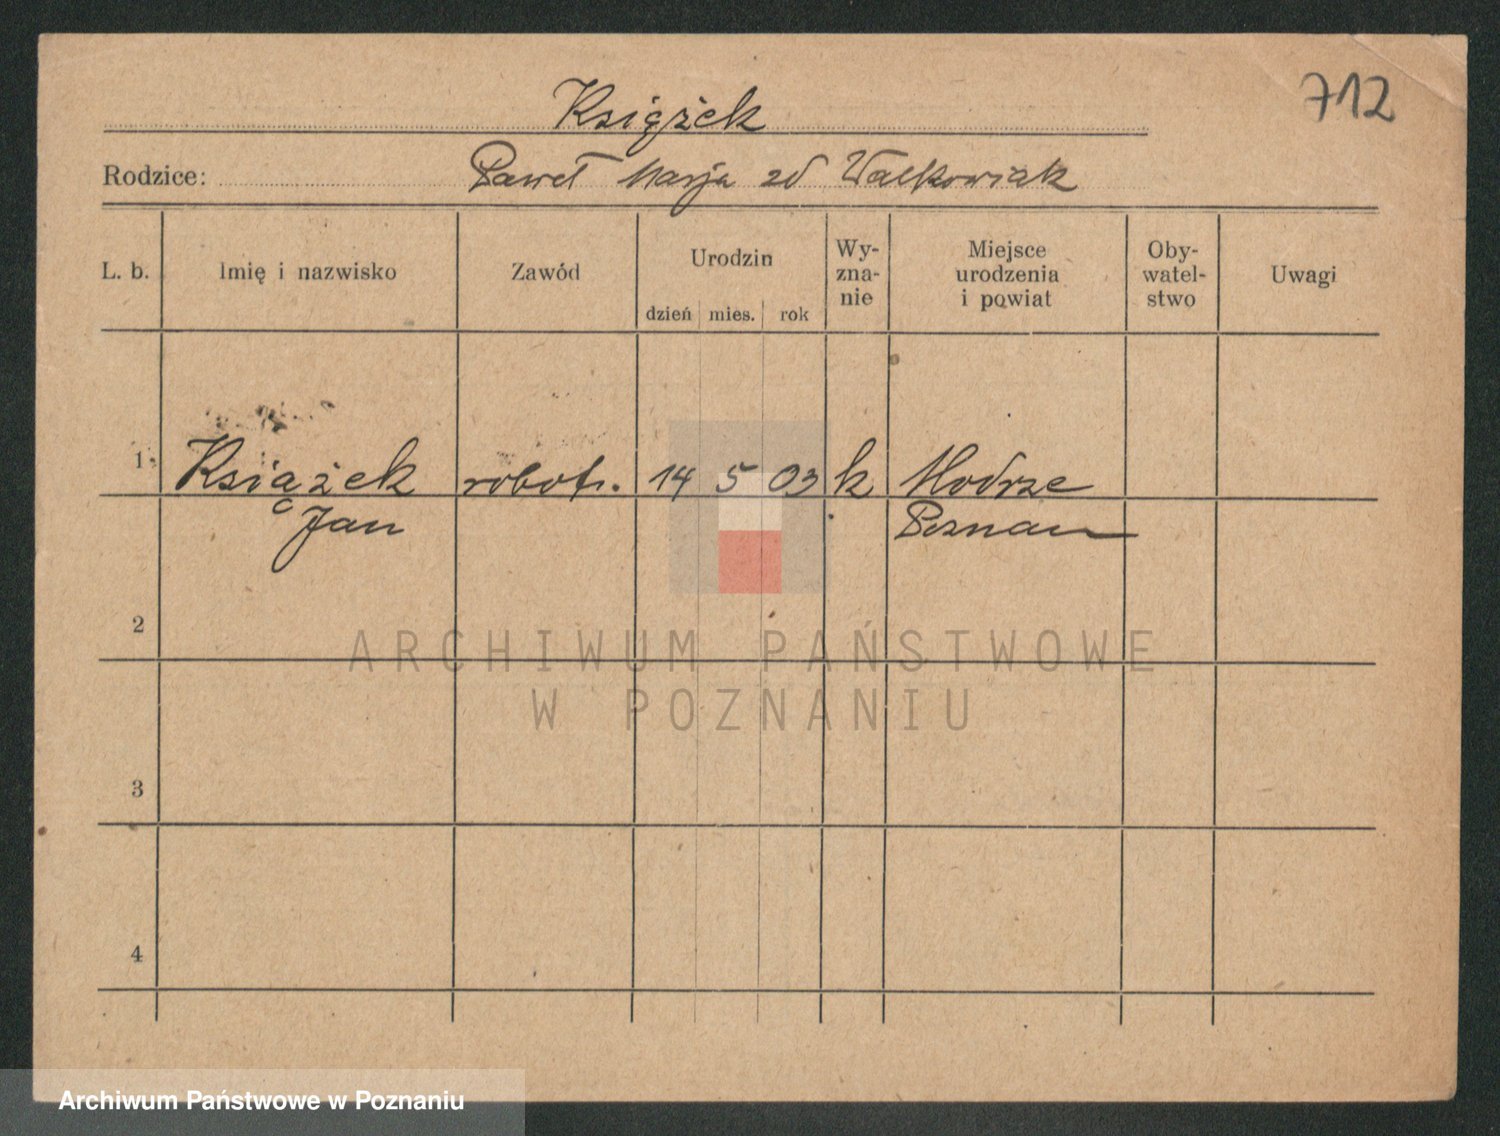 Książek
712
Rodzice: Paweł Marja zd Walkowiak
L. b. Imię i nazwisko Zawód Urodzin dzień mies. rok Wy-zna-nie Miejsce urodzenia i powiat Oby-watel-stwo Uwagi
1 Książek robotn. 14 5 03 k Modrze
Jan Poznan
2
ARCHIWUM PAŃSTWOWE
W POZNANIU
3
4
Archiwum Państwowe w Poznaniu